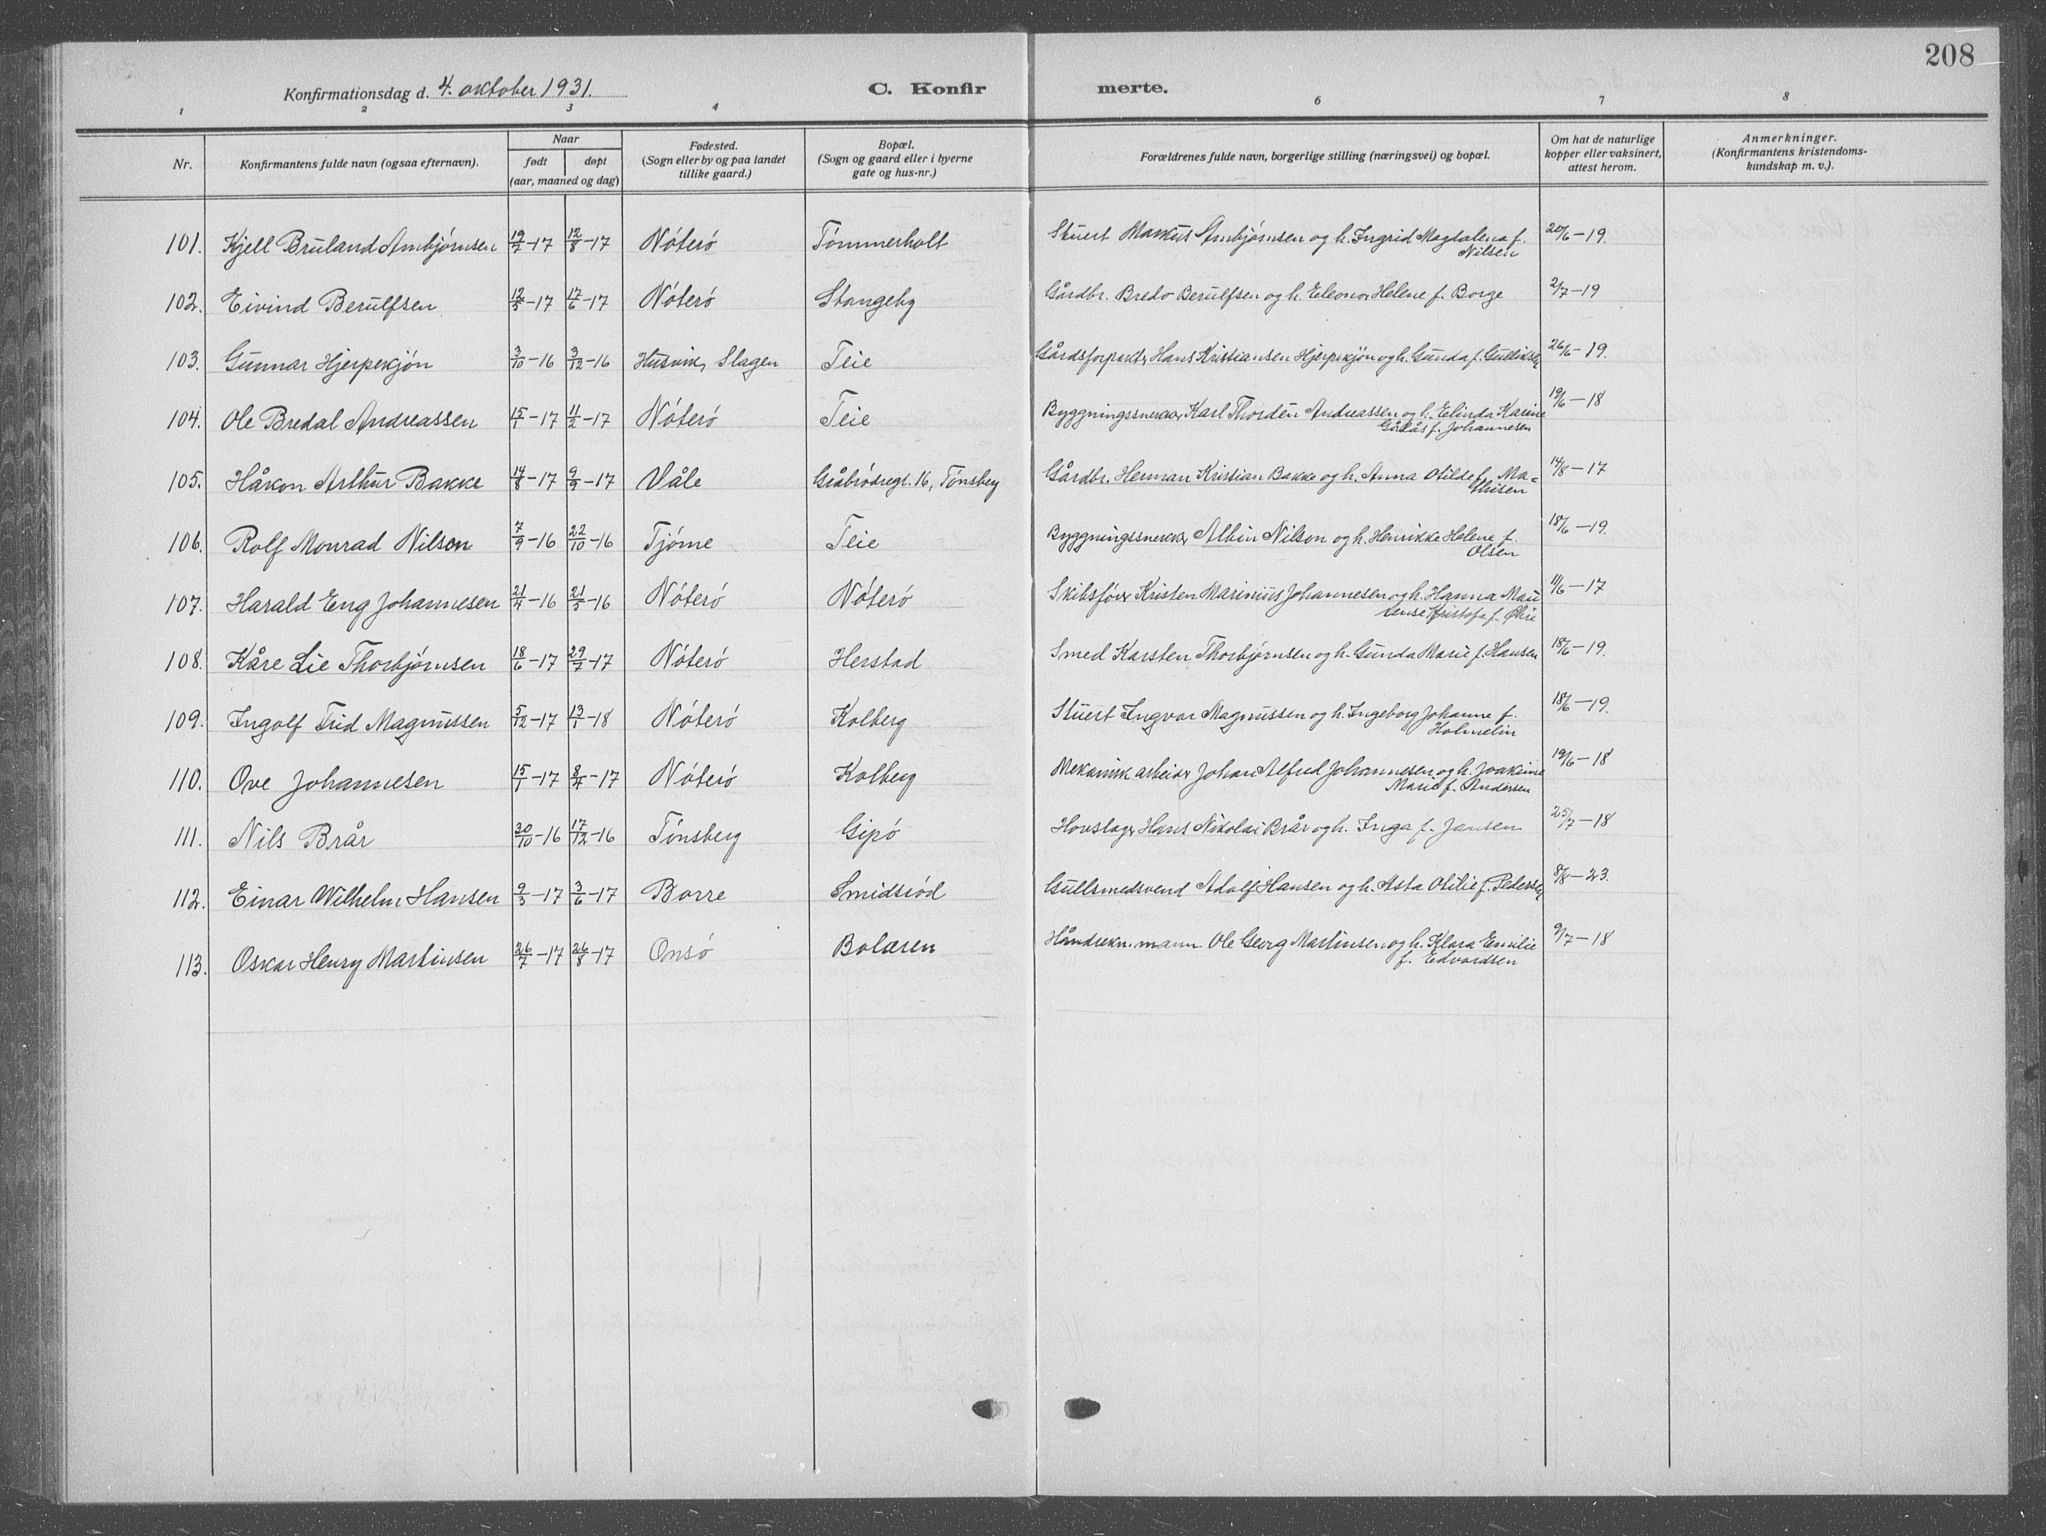 208
Konfirmationsdag d. 4. oktober 1931. C. Konfir merte.
1 2 3 4 6 7 8
Nr. Konfirmantens fulde navn (ogsaa efternavn). Naar født døpt (aar, maaned og dag) Fødested. (Sogn eller by og paa landet tillike gaard.) Bopæl. (Sogn og gaard eller i byerne gate og hus-nr.) Forældrenes fulde navn, borgerlige stilling (næringsvei) og bopæl. Om hat de naturlige kopper eller vaksinert, attest herom. Anmerkninger. (Konfirmantens kristendoms-kundskap m. v.).
101. Kjell Bruland Ambjørnsen 19/7-17 12/8-17 Nøterø Tømmerholt Stuert Markus Ambjørnsen og h. Ingrid Magdalena f. 20/6-19.
Nilsen
102. Eivind Berulfsen 12/5-17 17/6-17 Nøterø Stangeby Gårdbr. Bredo Berulfsen og h. Eleonor Helene f. Borge 2/7-19
103. Gunnar Hjerpekjøn 3/10-16 3/12-16 Husvik, Slagen Teie Gårdsforpakter Hans Kristiansen Hjerpekjøn og h. Gunda f. Gulliksen 26/6-19.
104. Ole Bredal Andreassen 15/1-17 11/2-17 Nøterø Teie Byggningssnekker Karl Thordén Andreassen og h. Elinda Karine 19/6-18
f. Johannesen
105. Håkon Arthur Bakke 14/8-17 9/9-17 Våle Gråbrødregt. 16, Tønsberg Gårdbr. Herman Kristian Bakke og h. Anna Otilde f. Ma- 14/8-17
thisen
106. Rolf Monrad Nilsen 7/9-16 22/10-16 Tjøme Teie Byggningssnekker Albin Nilson og h. Henrikke Helene f. 18/6-19.
Olsen
107. Harald Eng Johannesen 21/4-16 21/5-16 Nøterø Nøterø Skibsfører Kristen Marinius Johannesen og h. Hanna Mau 11/6-17
ense Kristofa f. Økre
108. Kåre Lie Thorbjørnsen 18/6-17 29/7-17 Nøterø Herstad Smed Karsten Thorbjørnsen og h. Gunda Marie f. Hansen 18/6-19.
109. Ingolf Trid Magnussen 5/12-17 13/1-18 Nøterø Kolberg Stuert Ingvar Magnussen og h. Ingeborg Johanne f. 18/6-19.
Holmelin
110. Ove Johannesen 15/1-17 8/4-17 Nøterø Kolberg Mekanisk arbeider Johan Alfred Johannesen og h. Joakime 19/6-18
Marie f. Andersen
111. Nils Brår 30/10-16 17/12-16 Tønsberg Gipø Hovslager Hans Nikolai Brår og h. Inga f. Jansen 25/7-18
112. Einar Wilhelm Hansen 9/3-17 3/6-17 Borre Smidsrød Gullsmedsvend Adolf Hansen og h. Asta Otilie f. Pedersen 8/8-23.
113. Oskar Henry Martinsen 26/7-17 26/8-17 Onsø Bolæren Håndverkn. mann Ole Georg Martinsen og h. Klara Emilie 9/7-18
f. Edvardsen